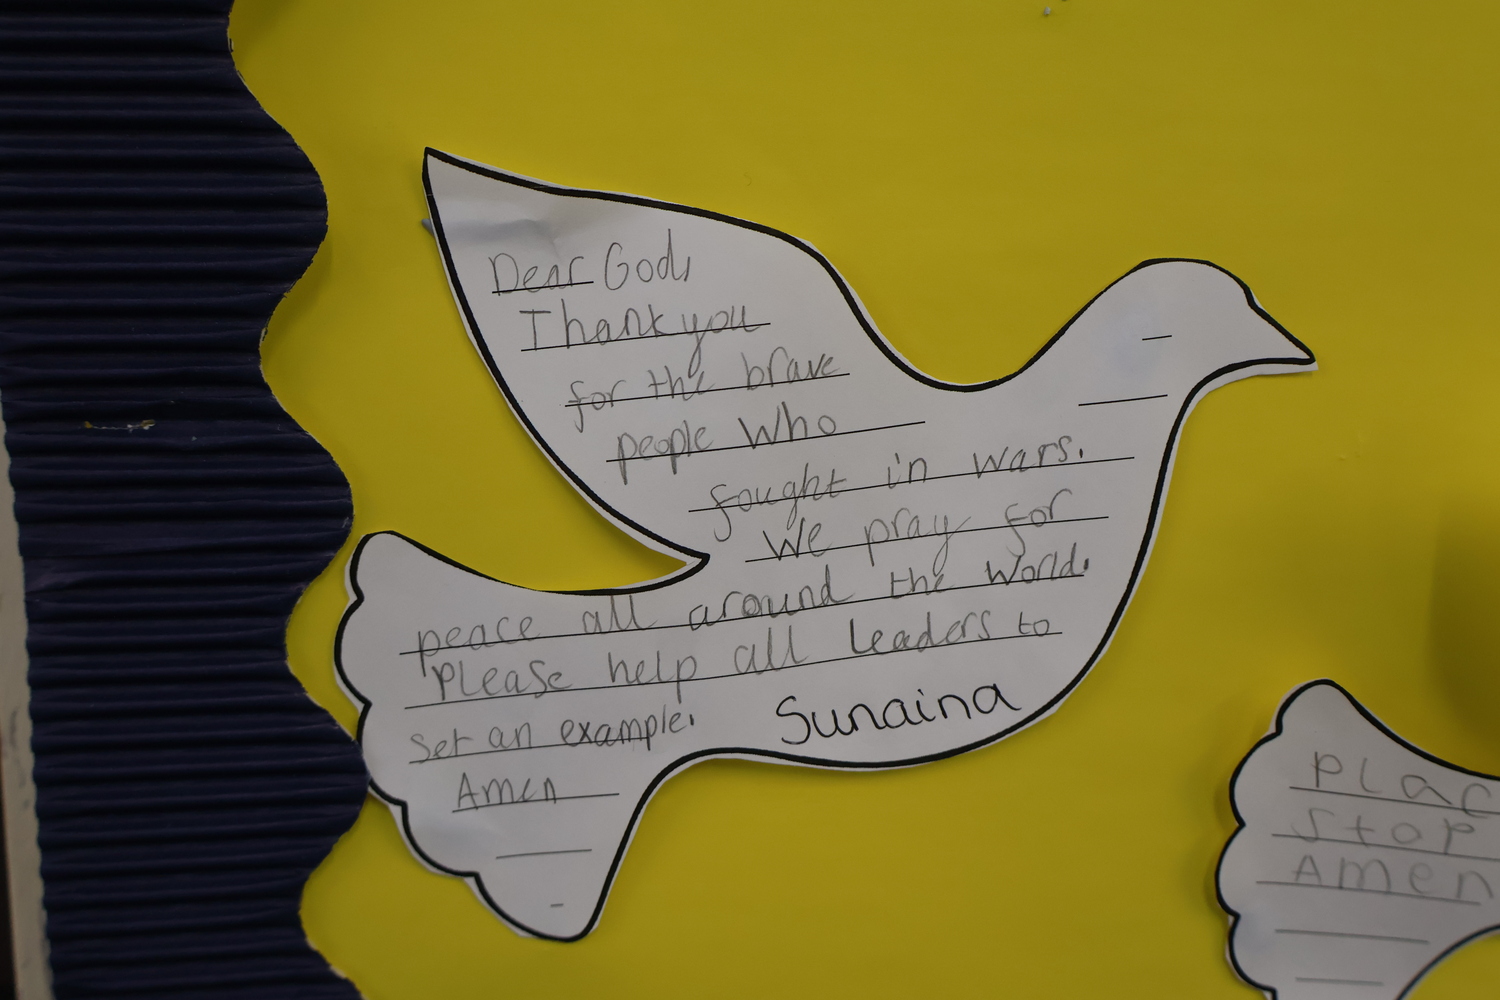 Dear God,
Thank you
for the brave
people who
fought in wars.
We pray for
peace all around the world.
Please help all leaders to
set an example.
Amen
Sunaina
plac
Stop
Amen